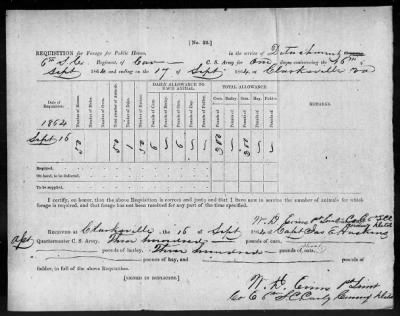 [No. 33.]
REQUISITION for Forage for Public Horses, in the service of Detachment
6th S.C. Regiment of Cav C. S. Army for One days commencing the 16th
Sept 1864 and ending on the 17 of Sept 1864 at Clarksville Va
DAILY ALLOWANCE TO EACH ANIMAL. TOTAL ALLOWANCE.
Date of Requisition. Number of Horses. Number of Mules. Number of Oxen. Total number of Animals. Number of Days. Corn. Barley. Oats. Hay. Fodder. Corn. Barley. Oats. Hay. Fodder. REMARKS.
1864
Sept 16 50 50 1 300 300
Required,
On hand, to be deducted,
To be supplied,
I certify, on honor, that the above Requisition is correct and just; and that I have now in service the number of animals for which forage is required, and that forage has not been received for any part of the time specified.
RECEIVED at Clarksville the 16 of Sept 1864 of Capt Jas E Haskins
Quartermaster C. S. Army, Three hundred pounds of corn,
pounds of barley, Three hundred pounds of
pounds of hay, and pounds of
fodder, in full of the above Requisition.
[SIGNED IN DUPLICATE.]
Co C 6th S.C. Cavly